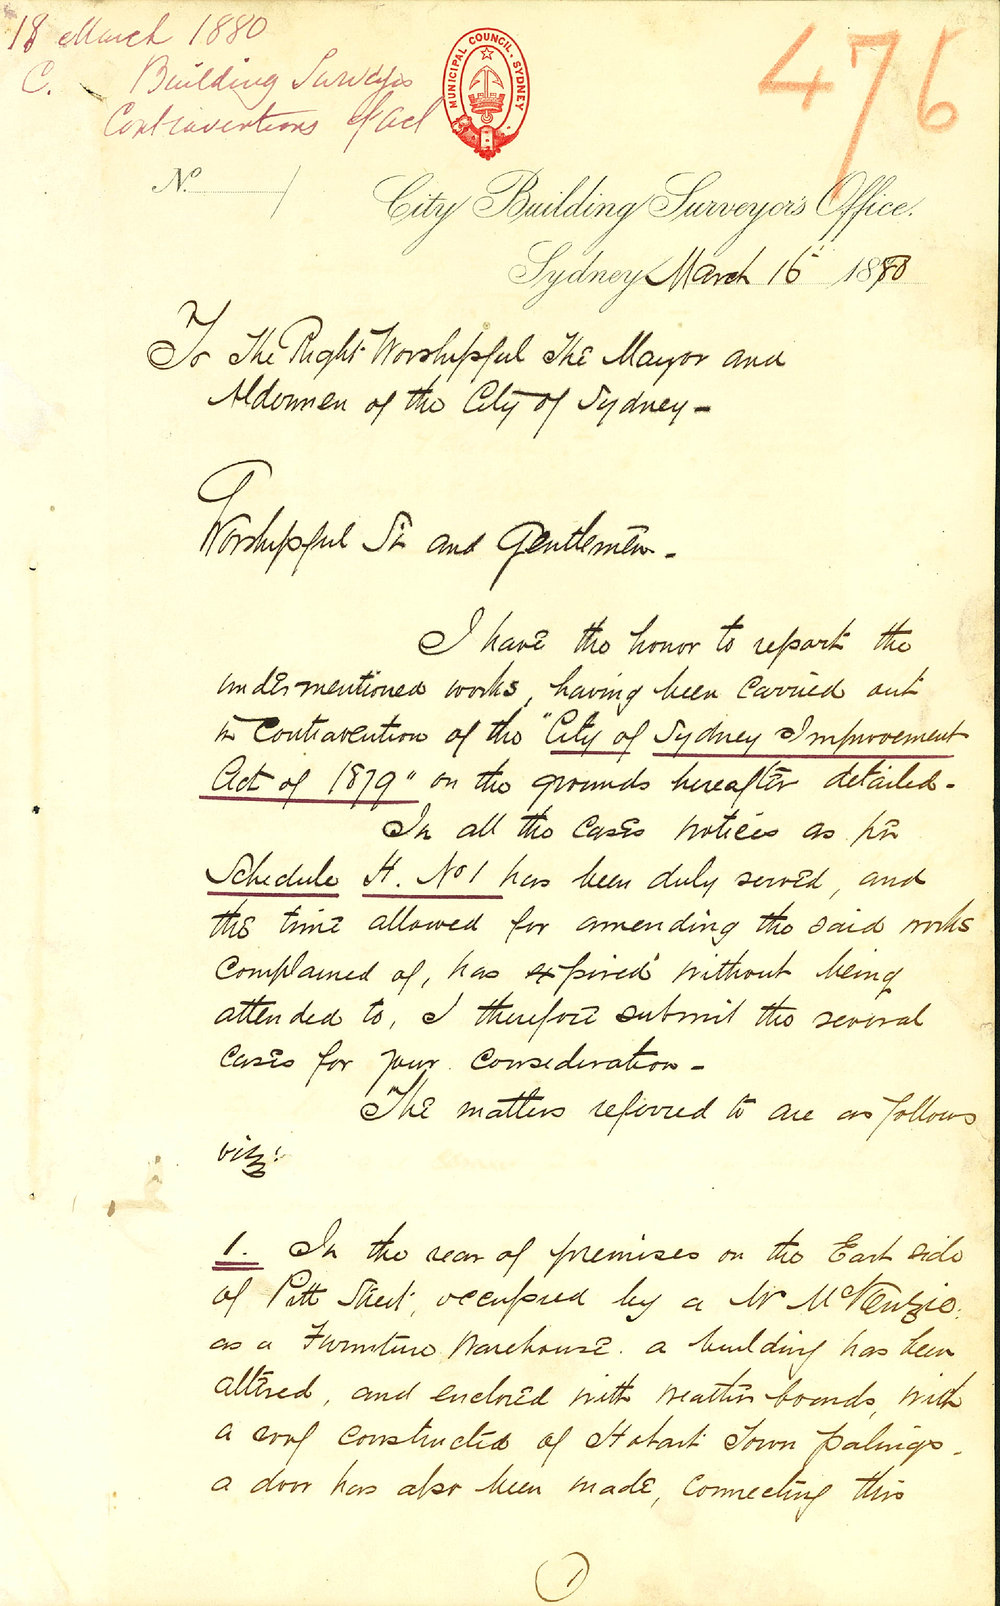 18 March 1880
C. Building Surveyor
Contraventions of Act
MUNICIPAL COUNCIL. SYDNEY
476
No.
City Building Surveyor's Office.
Sydney March 16th 1880
To The Right Worshipful The Mayor and
Aldermen of the City of Sydney -
Worshipful Sir and Gentlemen -
I have the honor to report the
undermentioned works, having been carried out
in contravention of the "City of Sydney Improvement
Act of 1879" on the grounds hereafter detailed -
In all the cases notices as per
Schedule H. No 1 has been duly served, and
the time allowed for amending the said works
complained of, has expired without being
attended to, I therefore submit the several
cases for your consideration -
The matters referred to are as follows
viz:
1. In the rear of premises on the East side
of Pitt Street, occupied by a Mr McKenzie.
as a Furniture Warehouse. a building has been
altered, and enclosed with weather boards, with
a roof constructed of Hobart Town palings -
a door has also been made, connecting this
1